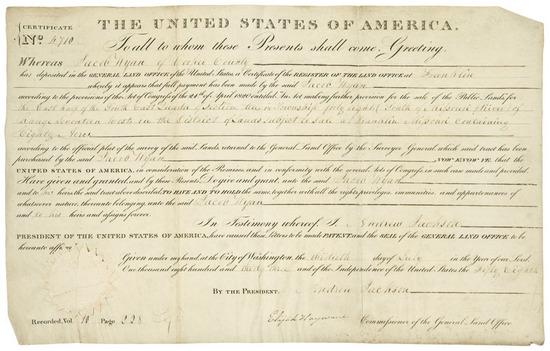 CERTIFICATE
THE UNITED STATES OF AMERICA.
No. 4710
To all to whom these Presents shall come, Greeting.
Whereas Jacob Wyan of County
has deposited in the GENERAL LAND OFFICE of the United States, a Certificate of the REGISTER OF THE LAND OFFICE at Franklin
whereby it appears that full payment has been made by the said Jacob Wyan
according to the provisions of the Act of Congress of the 24th of April 1820 entitled An Act making further provision for the sale of the Public Lands for
the East half of the South East of Section in Township forty eight North of of
Range Seventeen West in the District of Lands subject to sale at Franklin Missouri containing
Eighty Acres
according to the official plat of the survey of the said Lands, returned to the General Land Office by the Surveyor General, which said tract has been
purchased by the said Jacob Wyan NOW KNOW YE, that the
UNITED STATES OF AMERICA, in consideration of the Premises, and in conformity with the several Acts of Congress, in such case made and provided,
Have given and granted, and by these Presents, Do give and grant, unto the said Jacob Wyan
and to his heirs, the said tract above described, TO HAVE AND TO HOLD the same, together with all the rights, privileges, immunities, and appurtenances of
whatsoever nature, thereunto belonging, unto the said Jacob Wyan
and to his heirs and assigns forever.
In Testimony whereof, I Andrew Jackson
PRESIDENT OF THE UNITED STATES OF AMERICA, have caused these Letters to be made PATENT, and the SEAL of the GENERAL LAND OFFICE to be
hereunto affixed.
Given under my hand, at the City of Washington, the day of July in the Year of our Lord
One thousand eight hundred and thirty three and of the Independence of the United States the fifty eighth
BY THE PRESIDENT Andrew Jackson
Elijah Hayward Commissioner of the General Land Office
Recorded, Vol 10 Page 228